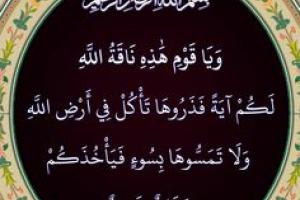 بسم الله الرحمن الرحيم
وَيَا قَوْمِ هَٰذِهِ نَاقَةُ اللَّهِ
لَكُمْ آيَةً فَذَرُوهَا تَأْكُلْ فِي أَرْضِ اللَّهِ
وَلَا تَمَسُّوهَا بِسُوءٍ فَيَأْخُذَكُمْ